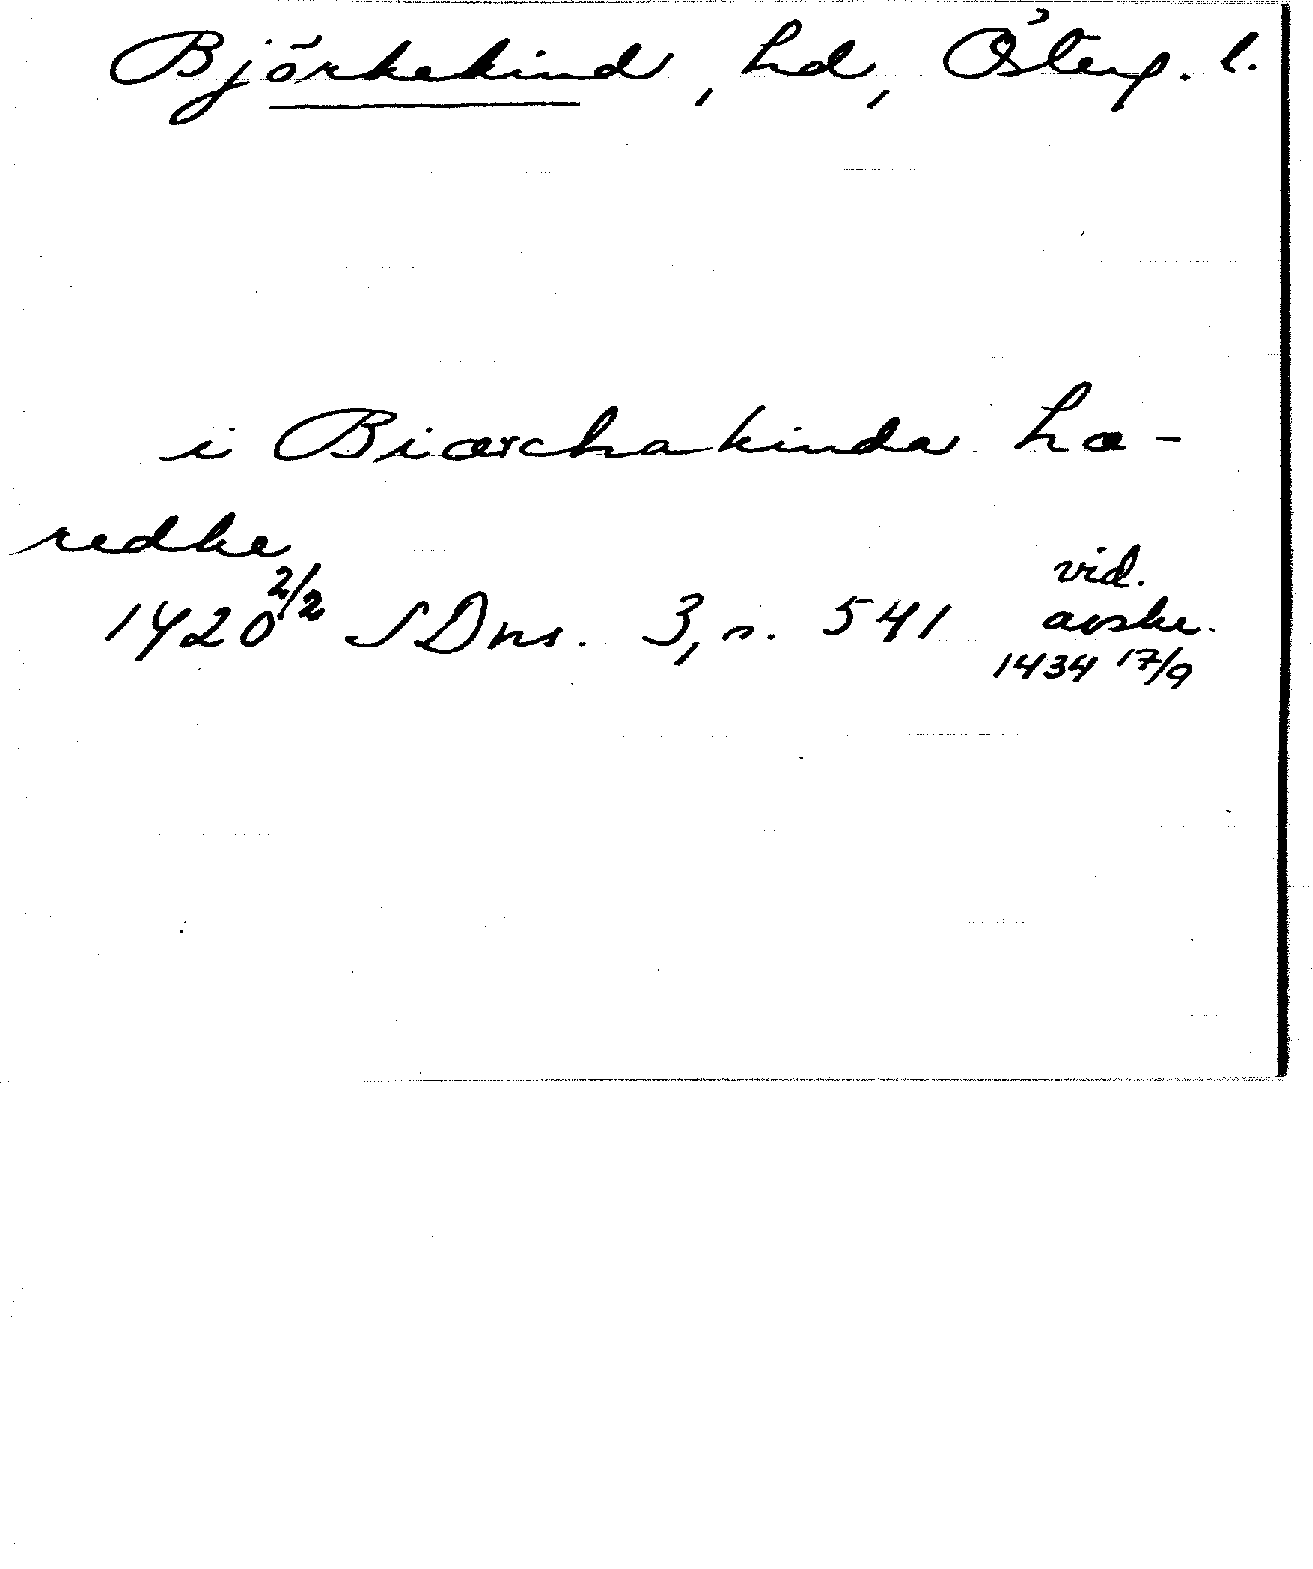 Björkekind, hd, Österg. l.
i Biærchakinda hæ-
redhe
1420 2/2 SDns. 3, s. 541 vid.
avskr.
1434 17/9